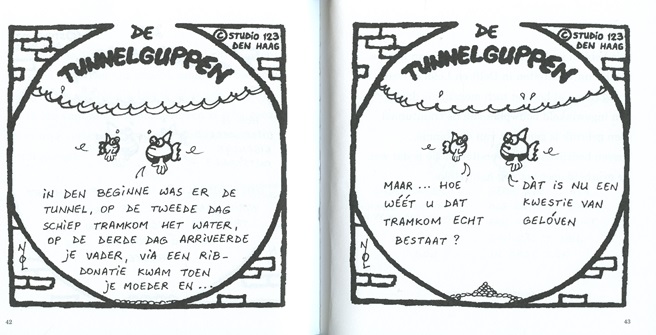 DE
TUNNELGUPPEN
© STUDIO 123
DEN HAAG
IN DEN BEGINNE WAS ER DE
TUNNEL, OP DE TWEEDE DAG
SCHIEP TRAMKOM HET WATER,
OP DE DERDE DAG ARRIVEERDE
JE VADER, VIA EEN RIB-
DONATIE KWAM TOEN
JE MOEDER EN ...
NOL
42
DE
TUNNELGUPPEN
© STUDIO 123
DEN HAAG
MAAR ... HOE
WÉÉT U DAT
TRAMKOM ECHT
BESTAAT ?
DÀT IS NU EEN
KWESTIE VAN
GELÓVEN
NOL
43